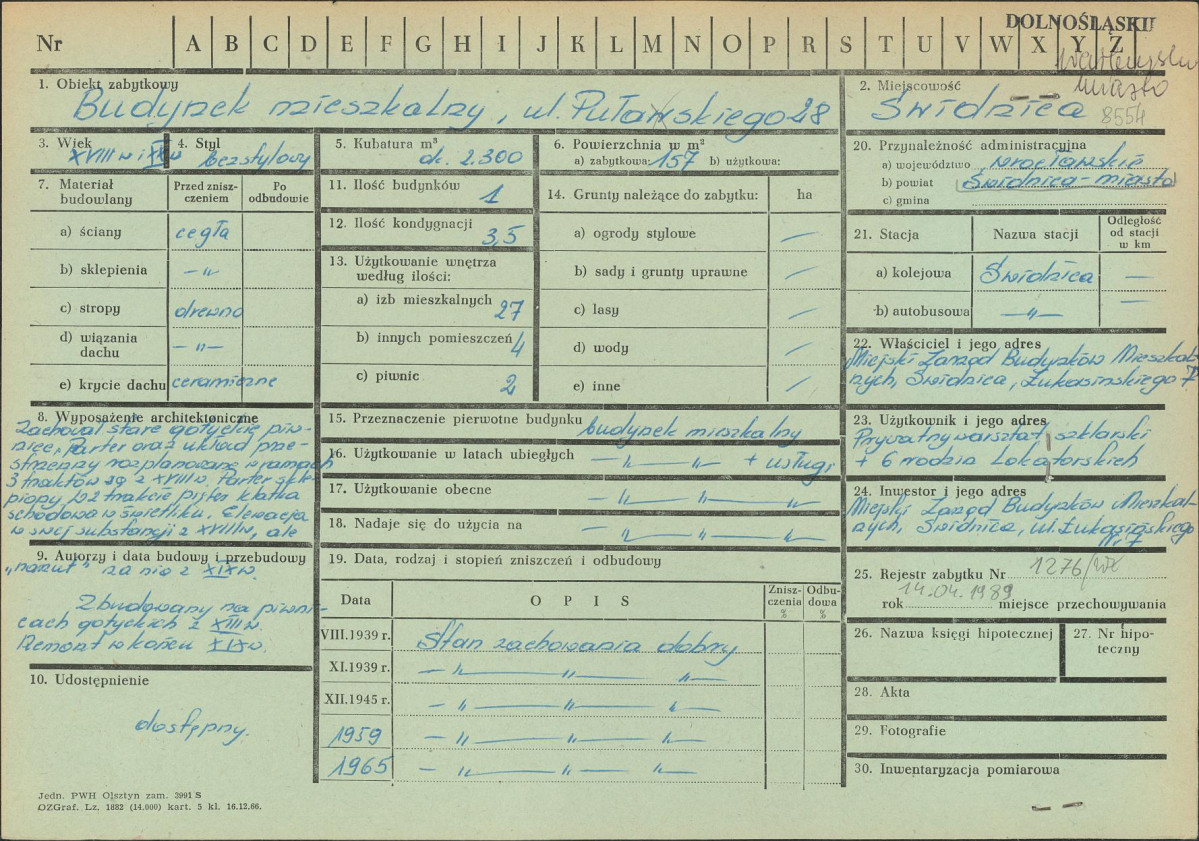 DOLNOŚLĄSKIE
Nr A B C D E F G H I J K L M N O P R S T U V W X Y Z
miasto
8554
1. Obiekt zabytkowy
Budynek mieszkalny, ul. Pułaskiego 28
2. Miejscowość
Świdnica
3. Wiek
XVIII w i XIX w
4. Styl
bezstylowy
5. Kubatura m³
ok. 2.300
6. Powierzchnia w m²
a) zabytkowa: 157 b) użytkowa:
7. Materiał budowlany
Przed zniszczeniem
Po odbudowie
a) ściany cegła
b) sklepienia — " —
c) stropy drewno
d) wiązania dachu — " —
e) krycie dachu ceramiczne
11. Ilość budynków
1
12. Ilość kondygnacji
3,5
13. Użytkowanie wnętrza według ilości:
a) izb mieszkalnych 27
b) innych pomieszczeń 4
c) piwnic 2
14. Grunty należące do zabytku: ha
a) ogrody stylowe —
b) sady i grunty uprawne —
c) lasy —
d) wody —
e) inne —
20. Przynależność administracyjna
a) województwo wrocławskie
b) powiat Świdnica-miasto
c) gmina
21. Stacja
Nazwa stacji
Odległość od stacji w km
a) kolejowa Świdnica —
b) autobusowa — " — —
22. Właściciel i jego adres
Miejski Zarząd Budynków Mieszkal-
nych, Świdnica, Łukasińskiego 7
8. Wyposażenie architektoniczne
Zachował stare gotyckie piw-
nice, Parter oraz układ prze-
strzenny rozplanowane w ramach
3 traktów są z XVIII w. Parter skle-
piony, w 2 trakcie pięter klatka
schodowa w świetliku. Elewacja
w swej substancji z XVIII w, ale
9. Autorzy i data budowy i przebudowy
„narzut” na nią z XIX w.
Zbudowany na piwni-
cach gotyckich z XIII w.
Remont w końcu XIX w.
10. Udostępnienie
dostępny.
15. Przeznaczenie pierwotne budynku budynek mieszkalny
16. Użytkowanie w latach ubiegłych — " — " — + usługi
17. Użytkowanie obecne — " — " — "
18. Nadaje się do użycia na — " — " — "
19. Data, rodzaj i stopień zniszczeń i odbudowy
Data
OPIS
Zniszczenia %
Odbudowa %
VIII.1939 r. Stan zachowania dobry
XI.1939 r. — " — " — " —
XII.1945 r. — " — " — " —
1959 — " — " — " —
1965 — " — " — " —
23. Użytkownik i jego adres
Prywatny warsztat szklarski
+ 6 rodzin lokatorskich
24. Inwestor i jego adres
Miejski Zarząd Budynków Mieszkal-
nych, Świdnica, ul. Łukasińskiego
Nr 7
25. Rejestr zabytku Nr 1276/WŁ
rok 14.04.1989 miejsce przechowywania
26. Nazwa księgi hipotecznej
27. Nr hipoteczny
28. Akta
29. Fotografie
30. Inwentaryzacja pomiarowa
Jedn. PWH Olsztyn zam. 3991 S
OZGraf. Lz. 1882 (14.000) kart. 5 kl. 16.12.66.